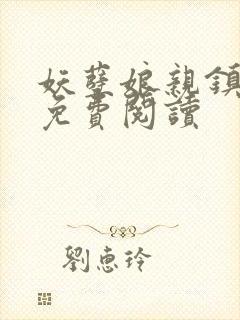 妖孽娘親鎮
免費閱讀
劉惠玲